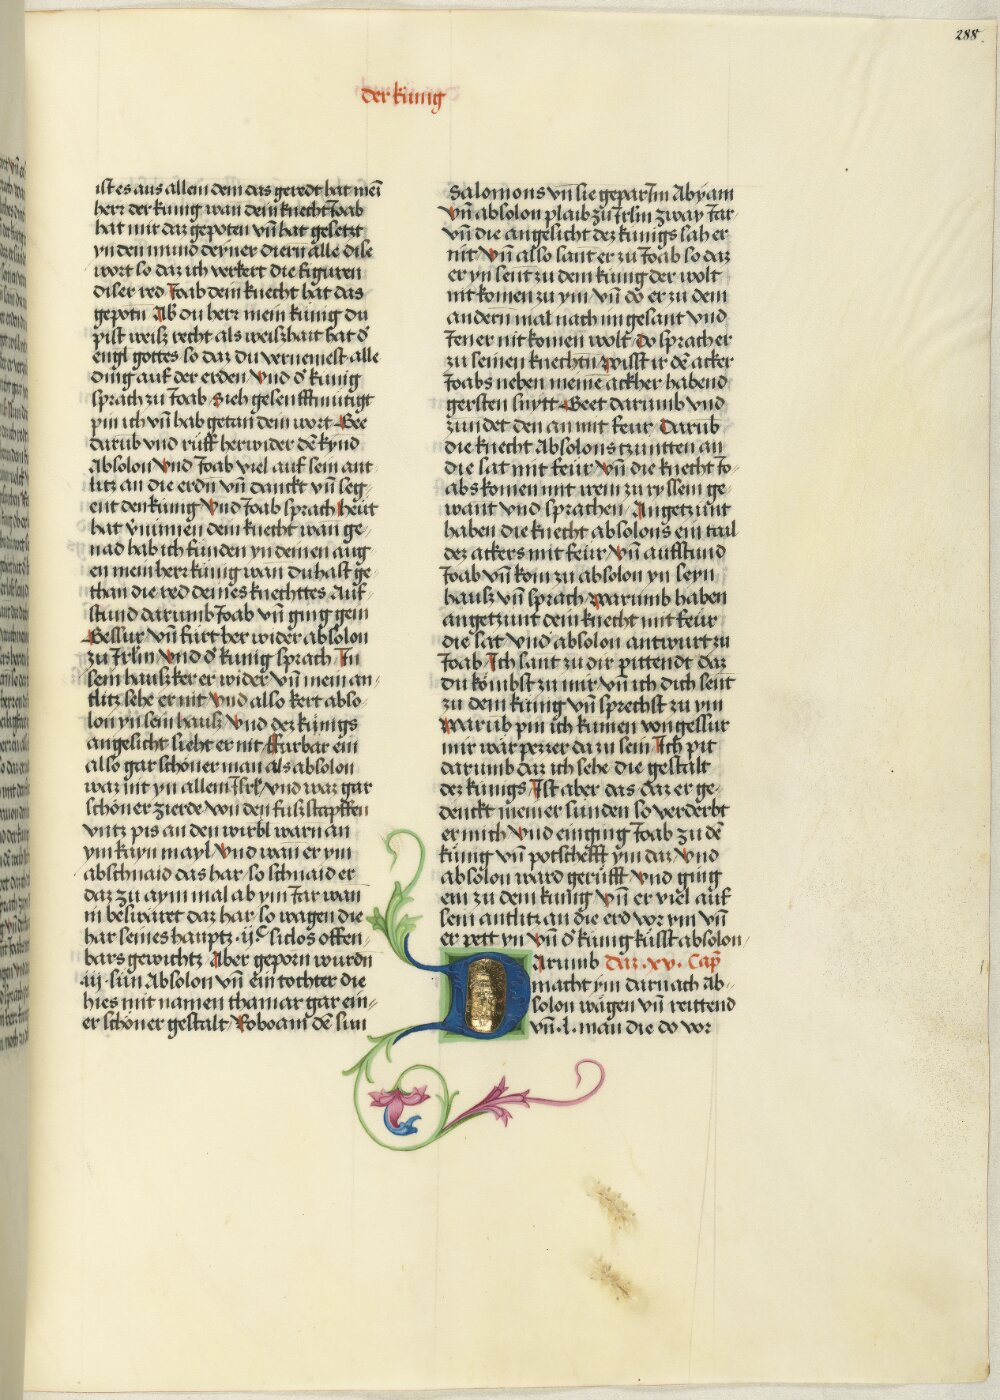 288.
der künig
ist es aus allem dem das geredt hat mei
herr der kunig wan dein knecht Joab
hat mit daz gepoten vñ hat gesetzt
yn den mund deyner diern alle dise
wort so daz ich verkert die figuren
diser red Joab dein knecht hat das
gepotn Ab du herr mein kunig du
pist weisz recht als weiszhait hat d᷑
engl gottes so daz du vernemest alle
ding auf der erden Vnd d᷑ kunig
sprach zu Joab Sich gesenfftmutigt
pin ich vñ hab getan dein wort Gee
darub vnd rüff herwider dē kynd
Absolon Vnd Joab viel auf sein ant
litz an die erdn vñ danckt vñ seg
ent den kunig Vnd Joab sprach heut
hat vnumen dein knecht wan ge
nad hab ich funden yn deinen aug
en mein herr kunig wan du hast ge
than die red deines knechttes Auf
stund darumb Joab vñ ging gein
Gessur vñ furt her wider absolon
zu Jrlm Vnd d᷑ kunig sprach In
sein hausz ker er wider vñ mein an
tlitz sehe er nit Vnd also kert abso
lon yn sein hausz Vnd dez kunigs
angesicht sieht er nit ffurbar ein
also gar schoner man als absolon
waz nit yn allem Jsrl vnd waz gar
schoner zierde von den fuszstapffen
vntz pis an den wirbl warn an
ym kayn mayl Vnd wan er ym
abschnaid das har so schnaid er
daz zu aym mal ab ym Jar wan
in beswäret daz har so wagen die
har seines hauptz .ij.c siclos offen
bars gewichtz Aber geporn wurdn
.iij. sun Absolon vñ ein tochter die
hies mit namen thamar gar ein
er schoner gestalt Roboam dē sun
Salomons vñ sie gepar Im Abyam
Vñ absolon plaib zu Jrlm zway Jar
vñ die angesicht dez kunigs sah er
nit Vñ also sant er zu Joab so daz
er yn sent zu dem kunig der wolt
nit komen zu ym vñ do er zu dem
andern mal nach im gesant vnd
Jener nit komen wolt Do sprach er
zu seinen knechtn Wisst ir dē acker
Joabs neben meinē ackher habend
gersten snytt Geet darumb vnd
zundet den an mit feur Darub
die knecht Absolons tzuntten an
die sat mit feur Vñ die knecht Jo
abs komen mit irem zuryssem ge
want vnd sprachen Angetzunt
haben die knecht absolons ein tail
dez ackers mit feur Vñ aufstund
Joab vñ kom zu absolon yn seyn
hausz vñ sprach Warumb haben
angetzunt dein knecht mit feur
die sat vnd absolon antwurt zu
Joab Ich sant zu dir pittendt daz
du kombst zu mir vñ ich dich sent
zu dem kunig vñ sprechst zu ym
Warub pin ich kumen von gessur
mir wär pezzer da zu sein Ich pit
darumb daz ich sehe die gestalt
dez kunigs Ist aber das daz er ge
denckt meiner sunden so verderbt
er mich Vnd einging Joab zu dē
kunig vñ potschefft ym daz Vnd
absolon ward gerufft Vnd ging
ein zu dem kunig Vñ er viel auf
sein antlitz an die erd vor ym vñ
er pett yn Vñ d᷑ kunig kusst absolon
DArumb Daz .xv. Cap
macht ym darnach Ab
solon wägen vñ reittend
vñ .l. man die do vor